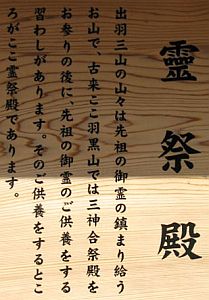 靈祭殿
出羽三山の山々は先祖の御霊の鎮まり給う
お山で、古来ここ羽黒山では三神合祭殿を
お参りの後に、先祖の御霊のご供養をする
習わしがあります。そのご供養をするとこ
ろがここ霊祭殿であります。